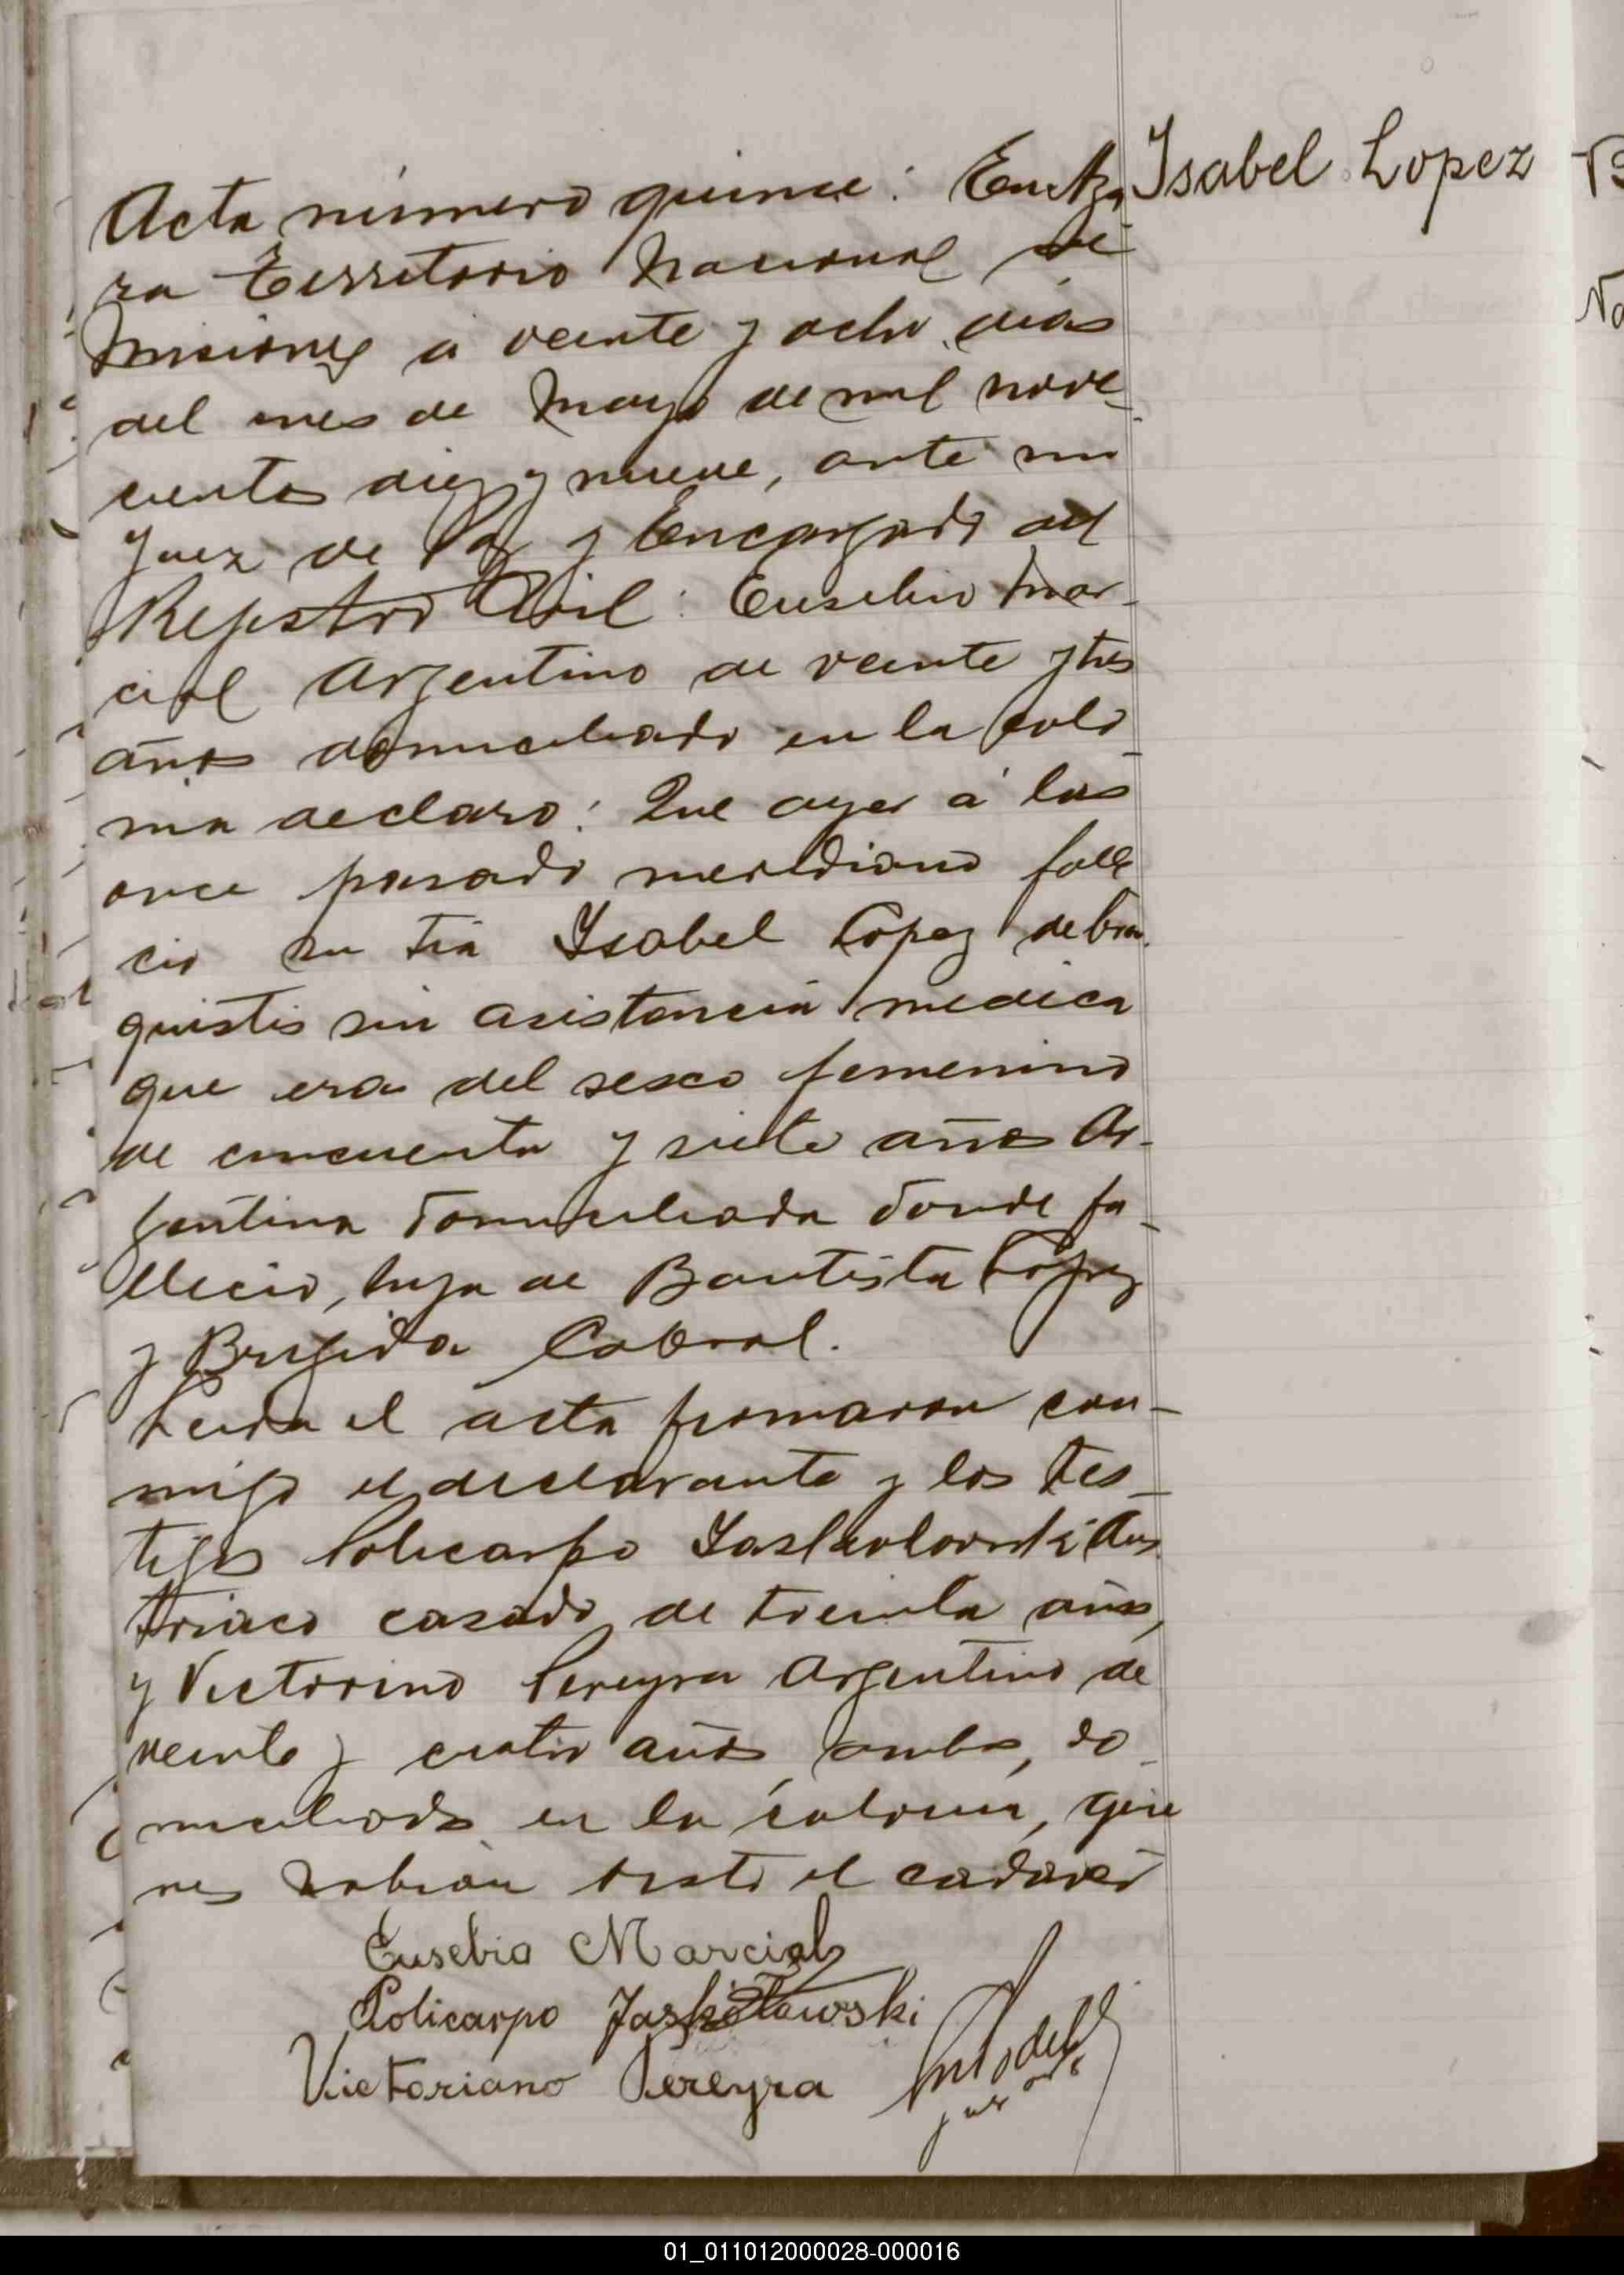 Isabel Lopez
Acta número quince: En Aza
ra Territorio Nacional de
Misiones á veinte y ocho dias
del mes de Mayo de mil nove_
cientos diez y nueve, ante mi
Juez de Paz y Encargado del
Registro Civil: Eusebio Mar_
cial Argentino de veinte y tres
años domiciliado en la colo_
nia declaro: Que ayer á las
once pasado meridiano falle
cio su tia Ysabel Lopez de bron
quistis sin asistencia medica
que era del sexo femenino
de cincuenta y siete años Ar_
gentina domiciliada donde fa_
llecio, hija de Bautista Lopez
y Brigida Cabral.
Leida el acta firmaron con_
migo el declarante y los tes_
tigos Policarpo Yaskolowski Aus
triaco casado de treinta años,
y Victorino Pereyra Argentino de
veinte y cuatro años, ambos, do_
miciliados en la colonia, quie
nes habian visto el cadaver
Eusebio Marcial
Policarpo Jaskolowski
Victoriano Pereyra
01_011012000028-000016